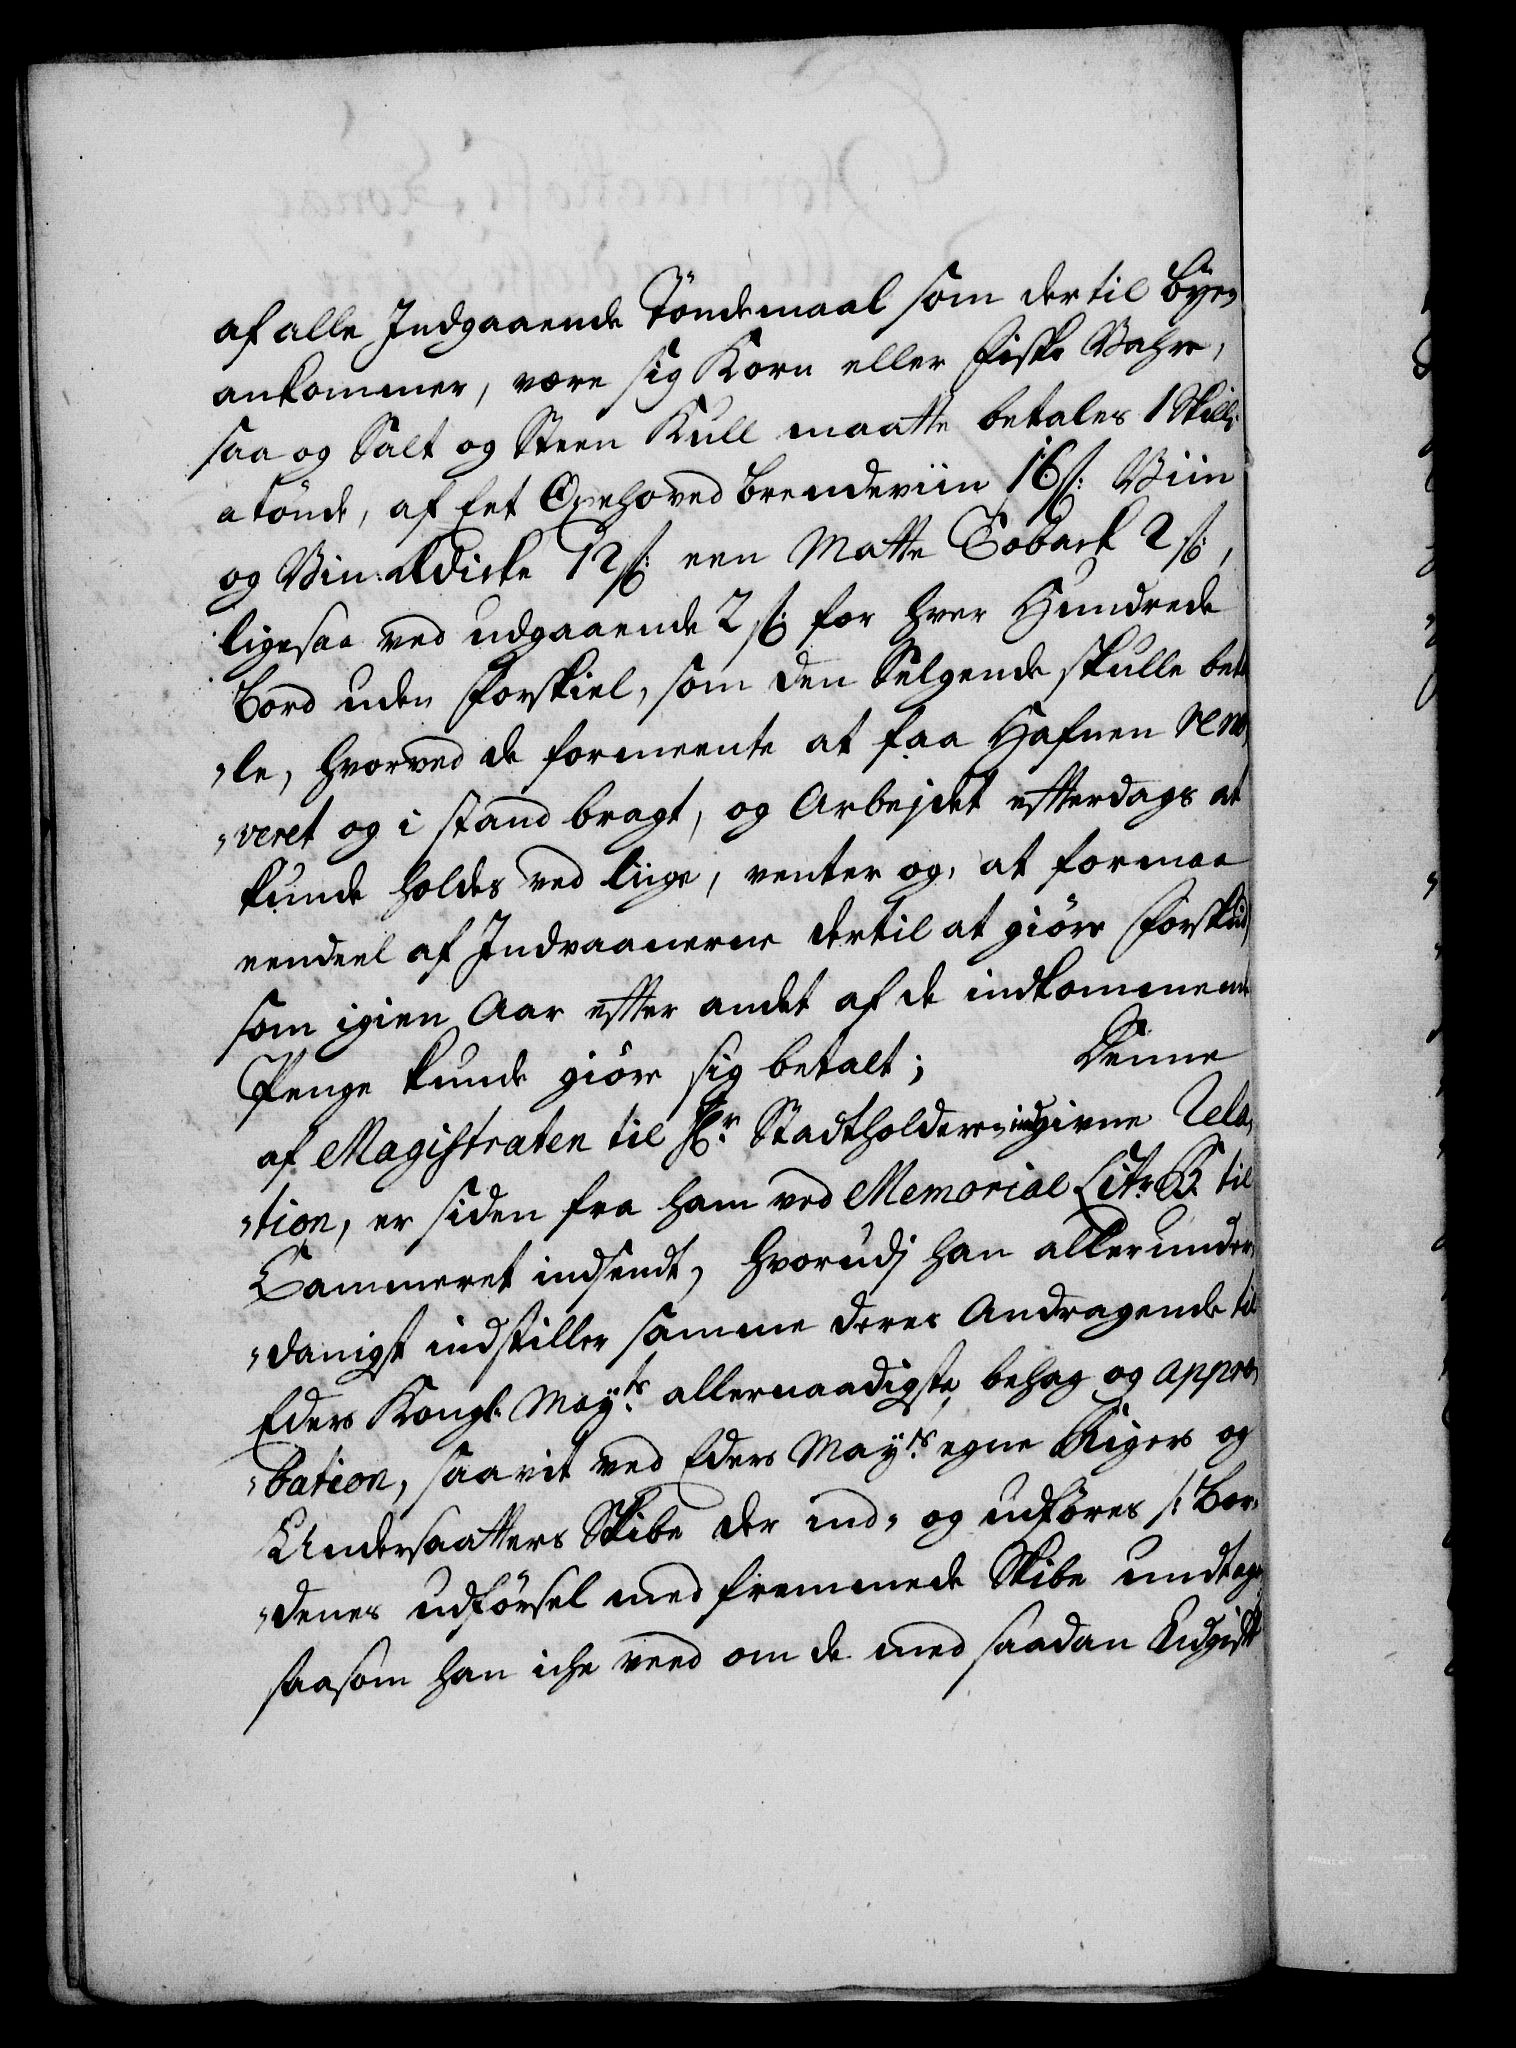 af alle Indgaaende Töndemaal som dertil Byen
ankommer, være sig Korn eller Fiske Vahre,
saa og Salt og Steen Kull maatte betales 1 Skill:
a tönde, af Eet Oxehoved Brendeviin 16 s: Viin
og Viin Ædicke 12 s: een Matte Toback 2 s:,
ligesaa ved udgaaende 2 s: for hver Hundrede
Bord uden Forskiel, som den Selgende skulle beta
„le, hvorved de formeente at faa Hafnen reno„
„veret og i stand bragt, og Arbejdet efterdags at
kunde holdes ved liige, venter og, at formaa
eendeel af Indvaanerne dertil at giöre Forskud
som igien Aar efter andet af de indkommende
Penge kunde giöre sig betalt; Denne
af Magistraten til Hr. Stadtholderen indgivne Rela„
„tion, er siden fra ham ved Memorial Litr. B. til
Cammeret indsendt, hvorudj han allerunder„
„danigst indstiller samme deres Andragende til
Eders Kongl: Mayts. allernaadigste behag og appro„
„bation, saavit ved Eders Mayts. egne Rigers og
Undersaatters Skibe der ind„ og udföres /: Bor„
„denes udförsel med fremmede Skibe undtagen
saasom han iche veed om de med saadan Udgift